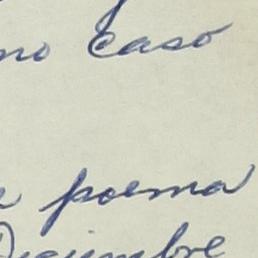 no caso
poema
Diciembre